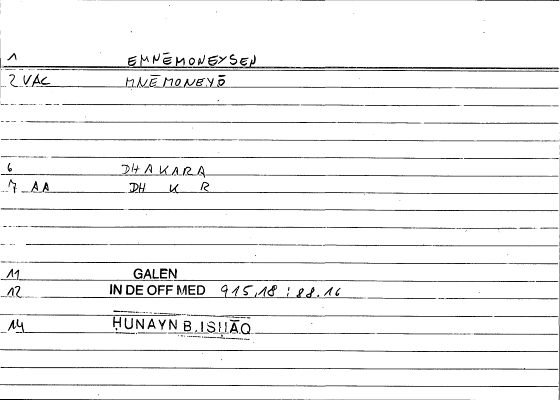 1 EMNĒMONEYSEN
2 VAC MNĒMONEYŌ
6 DHAKARA
7 AA DH K R
11 GALEN
12 IN DE OFF MED 915,18 : 88.16
14 ḤUNAYN B. ISḤĀQ